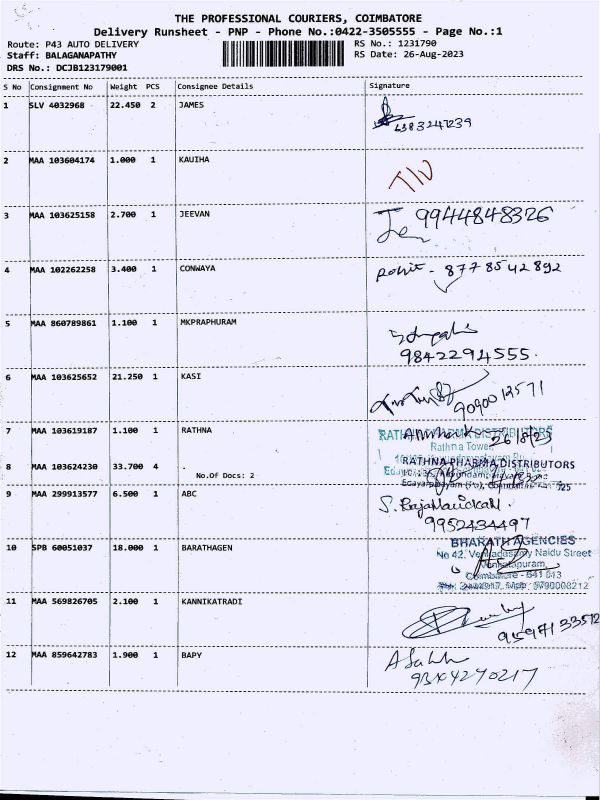 THE PROFESSIONAL COURIERS, COIMBATORE
Delivery Runsheet - PNP - Phone No.:0422-3505555 - Page No.:1
Route: P43 AUTO DELIVERY RS No.: 1231790
Staff: BALAGANAPATHY RS Date: 26-Aug-2023
DRS No.: DCJB123179001
S No Consignment No Weight PCS Consignee Details Signature
1 SLV 4032968 22.450 2 JAMES
2 MAA 103604174 1.000 1 KAUIHA
3 MAA 103625158 2.700 1 JEEVAN 9944848326
4 MAA 102262258 3.400 1 CONWAYA 8778542892
5 MAA 860789861 1.100 1 MKPRAPHURAM
9842294555.
6 MAA 103625652 21.250 1 KASI
7 MAA 103619187 1.100 1 RATHNA 26/8/23
Rathna Tower,
8 MAA 103624230 33.700 4 . RATHNA PHARMA DISTRIBUTORS
No.Of Docs: 2
9 MAA 299913577 6.500 1 ABC S. Rajamanickam.
9952434497
10 SPB 60051037 18.000 1 BARATHAGEN BHARATH AGENCIES
No 42. Venkadasamy Naidu Street
Venkatapuram,
Coimbatore - 641 043
11 MAA 569826705 2.100 1 KANNIKATRADI
9597133512
12 MAA 859642783 1.900 1 BAPY